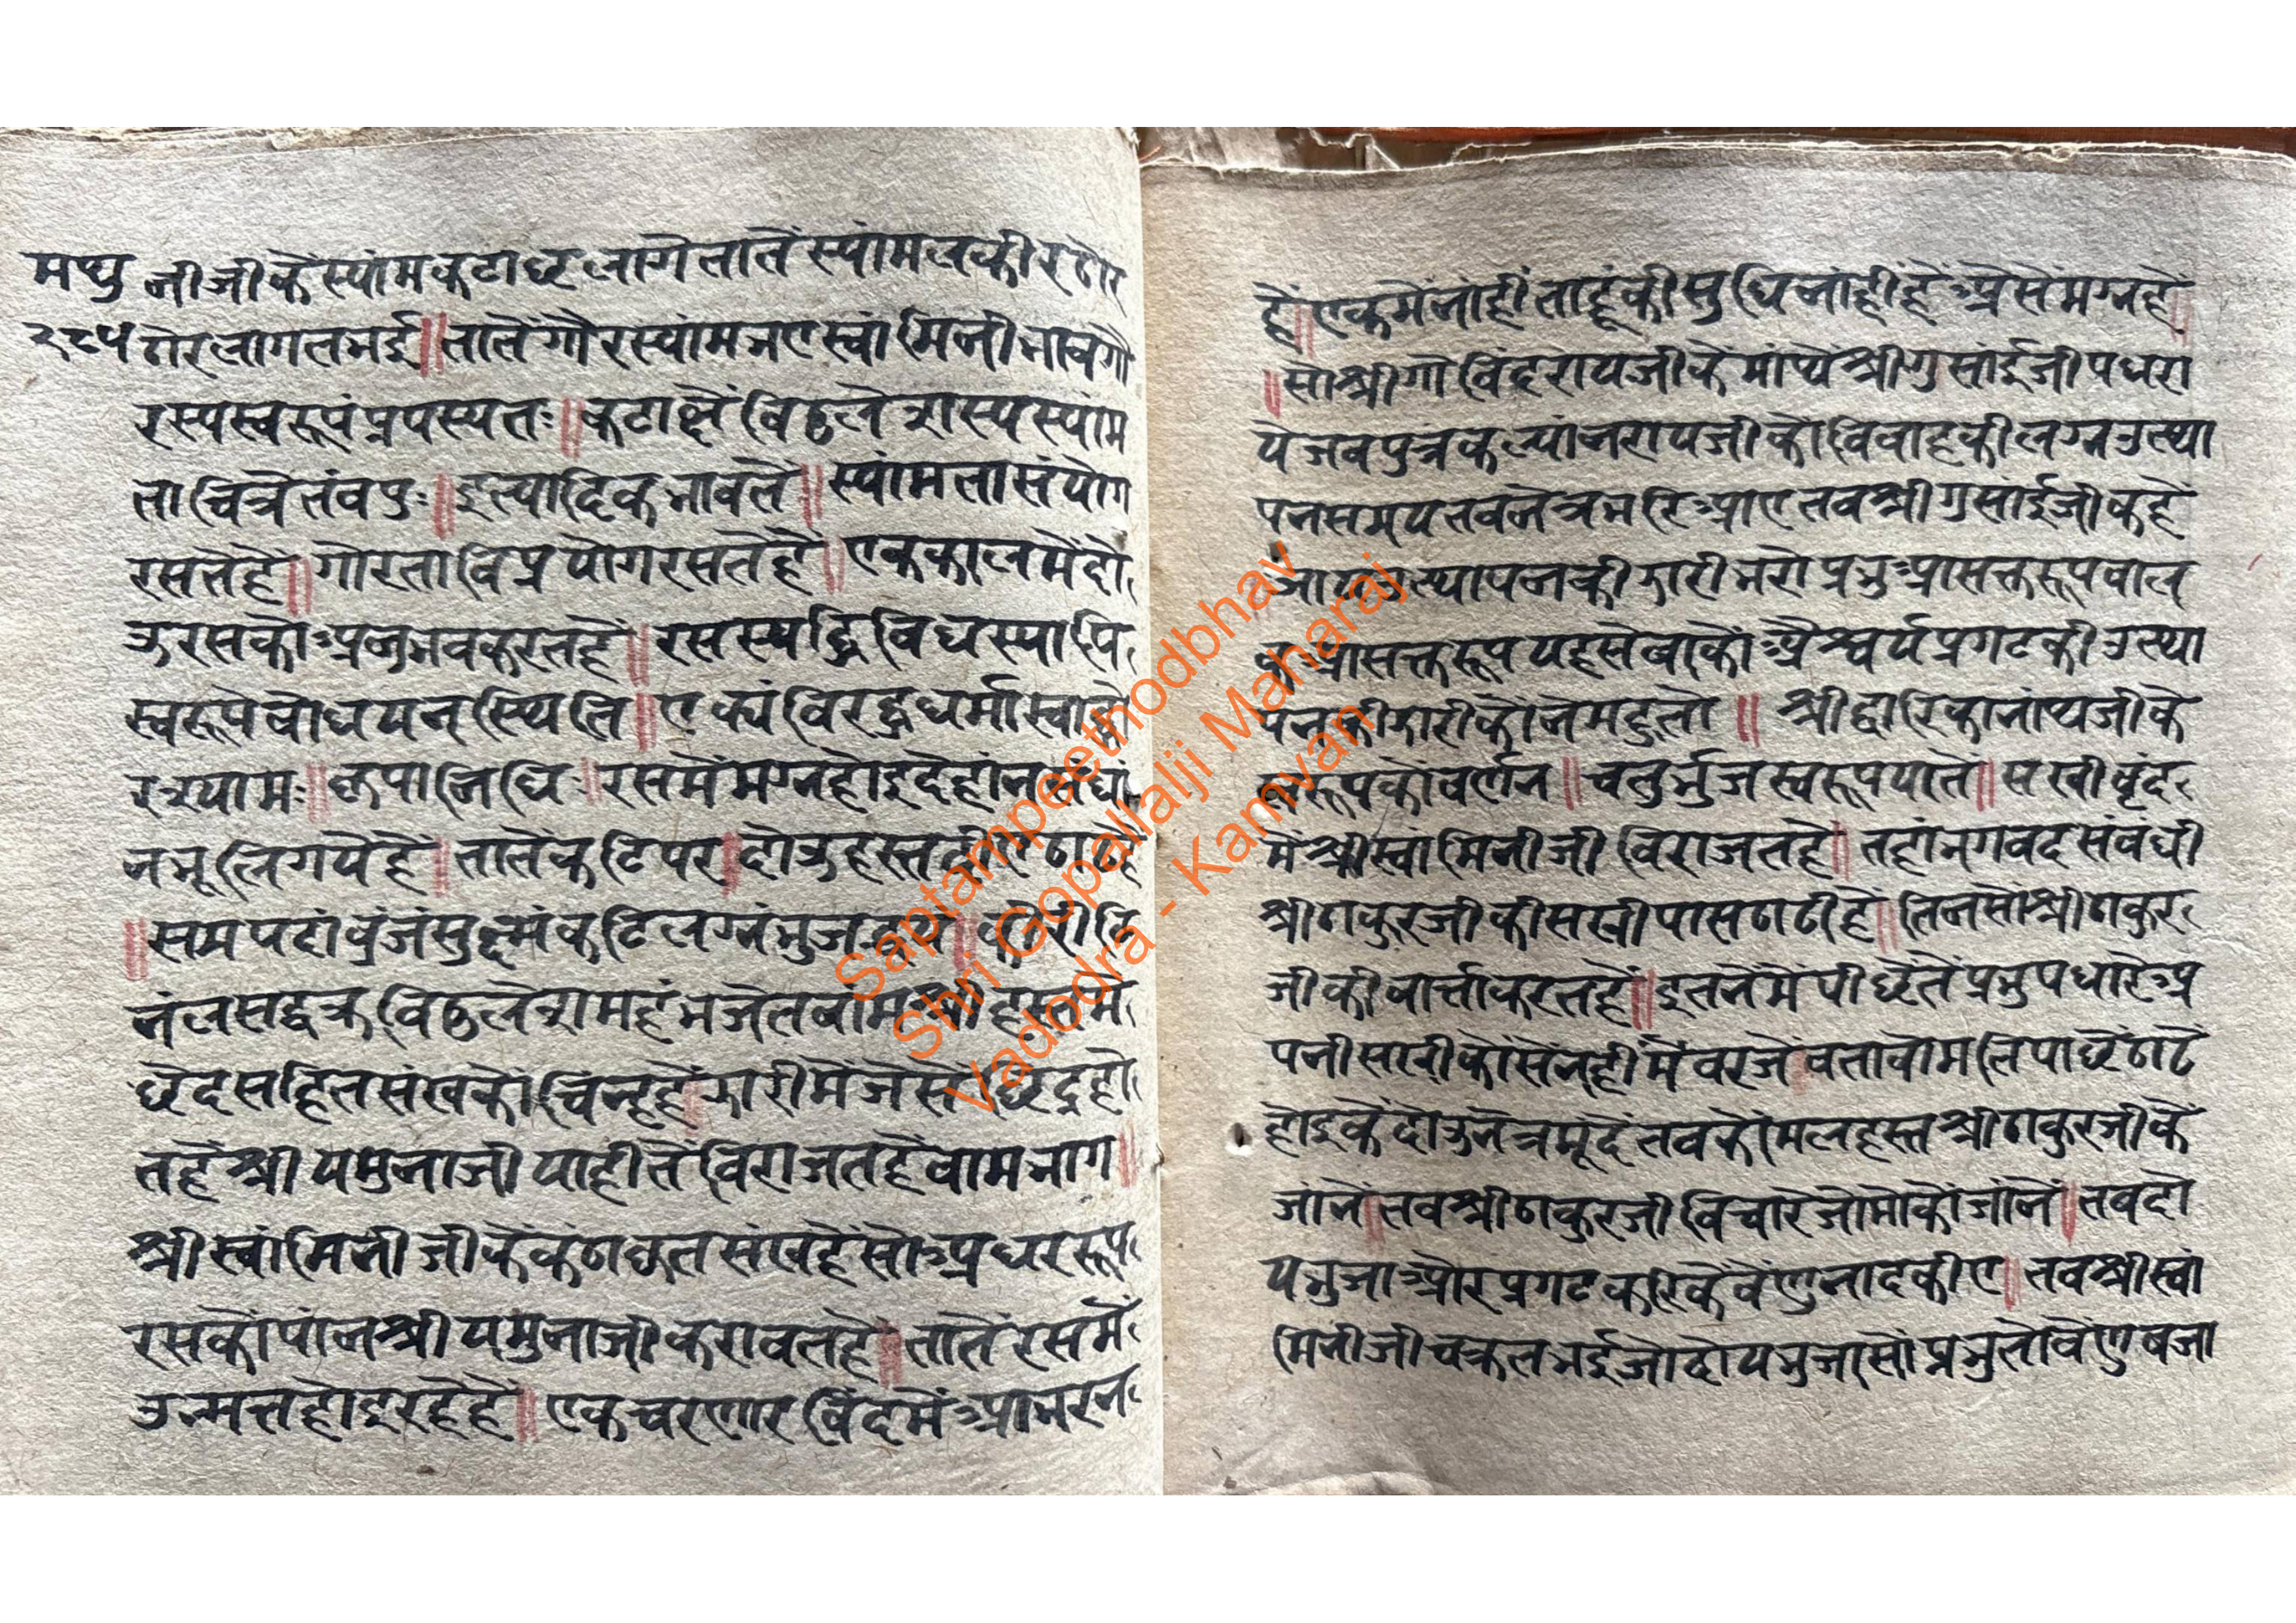 मथु नीजीकैस्यांमकटाछलागेतातेंस्यांमलकीरठोर
२८५ ठोरलागतभई॥तातेंगौरस्यांमभएस्वांमिनीभावगौ
रस्यस्वरूपंप्रपस्यतः॥कटाक्षैविठलेशस्यस्यांम
ताचित्रेतंवपुः॥इत्यादिकभावतें॥स्यांमतासंयोग
रसतेंहै॥गोरताविप्रयोगरसतेंहै॥एककालमेंदो
उरसकोअनुभवकरतहै॥रसस्यद्विविधस्यापि
स्वरूपेबोधयनस्थिति॥एक्यंविरुद्धधर्मा
श्रयामः॥कृपानिधि॥रसमेंमग्नहोइदेहांन
नभूलिगयेहैं॥तातेंकटिपर॥दोउहस्त
॥समपदांवुजंसुक्ष्मंकटिलग्नंभुज
नंलसद्वक्रविठलेशमहंभजेतवांमश्रीहस्तमें
छेदसहितसंखकोचिंन्हहै॥झारीमेंजेसेंछिद्रहो
तहेंश्रीयमुनाजीयाहीतेंविराजतहैवामभाग॥
श्रीस्वांमिनीजीकेंकंठाकृतसंखहेंसोअधररूप
रसकोपांनश्रीयमुनाजीकरावतहै॥तातेंरसमें
उन्मत्तहोइरहेहैं॥एकचरणारविंदमेंआभरन
हें॥एकमेंनांहींताहूंकीसुधिनांहींहेंअेसेंमग्नहें॥
॥सोश्रीगोविंदरायजीकेंमांथेंश्रीगुसांईजीपधरा
येजबपुत्रकल्यांनरायजीकोविवाहकीलग्नउत्था
पनसमयतबनेत्रभरिआएतवश्रीगुसांईजीकहें
उत्थापनकीझारीभरोप्रभुआसक्तरूपबाल
कआसक्तरूपयहसेवाकोअैश्वर्यप्रगटकीउत्था
पनकीझारीकोनेमहुतो॥श्रीद्वारिकानांथजीके
स्वरूपकोवर्णन॥चतुर्भुजस्वरूपयातें॥सखीवृंद
मेंश्रीस्वांमिनीजीविराजतहै॥तहांभगवदसंबंधी
श्रीठाकुरजीकीसखीपासठाढीहें॥तिनसोंश्रीठाकुर
जीकीवार्त्ताकरतहें॥इतनेमेंपीछेतेंप्रभुपधारेअ
पनीसखीकोंसेंनहीमेंबरजेबतावोमतिपाछेंठाढे
होइकेंदोउनेत्रमूंदेंतवकोमलहस्तश्रीठाकुरजीकें
जांनें॥तवश्रीठाकुरजीविचारेजोमोकोंजांनें॥तबदो
यभुजाओरप्रगटकरिकेंवेंणुनादकीए॥तबश्रीस्वां
मिनीजीचक्रतभईजोदोयभुजासोंप्रभुतोवेंणुबजा
Saptampeethodbhav
Shri Gopallalji Maharaj
Vadodra - Kamvan